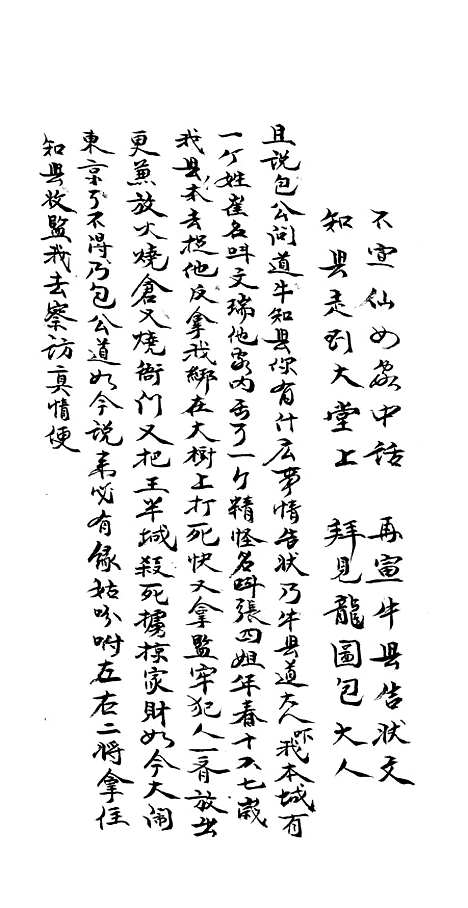 不宣仙女家中話　再宣牛县告狀文
知县走到大堂上　拜見龍圖包大人
且説包公问道牛知县你有什広事情告狀乃牛县道大人吓我本城有
一个姓崔名呌文瑞他家内丢了一个精怪名呌張四姐年春十六七歲
我县去捉他反拿我綁在大樹上打死快又拿監牢犯人一斉放出
更兼放火燒倉又燒衙门又把王半城殺死擄掠家財如今大闹
東京了不得乃包公道如今説来必有緣故吩咐左右二将拿住
知县收監我去察访真情便